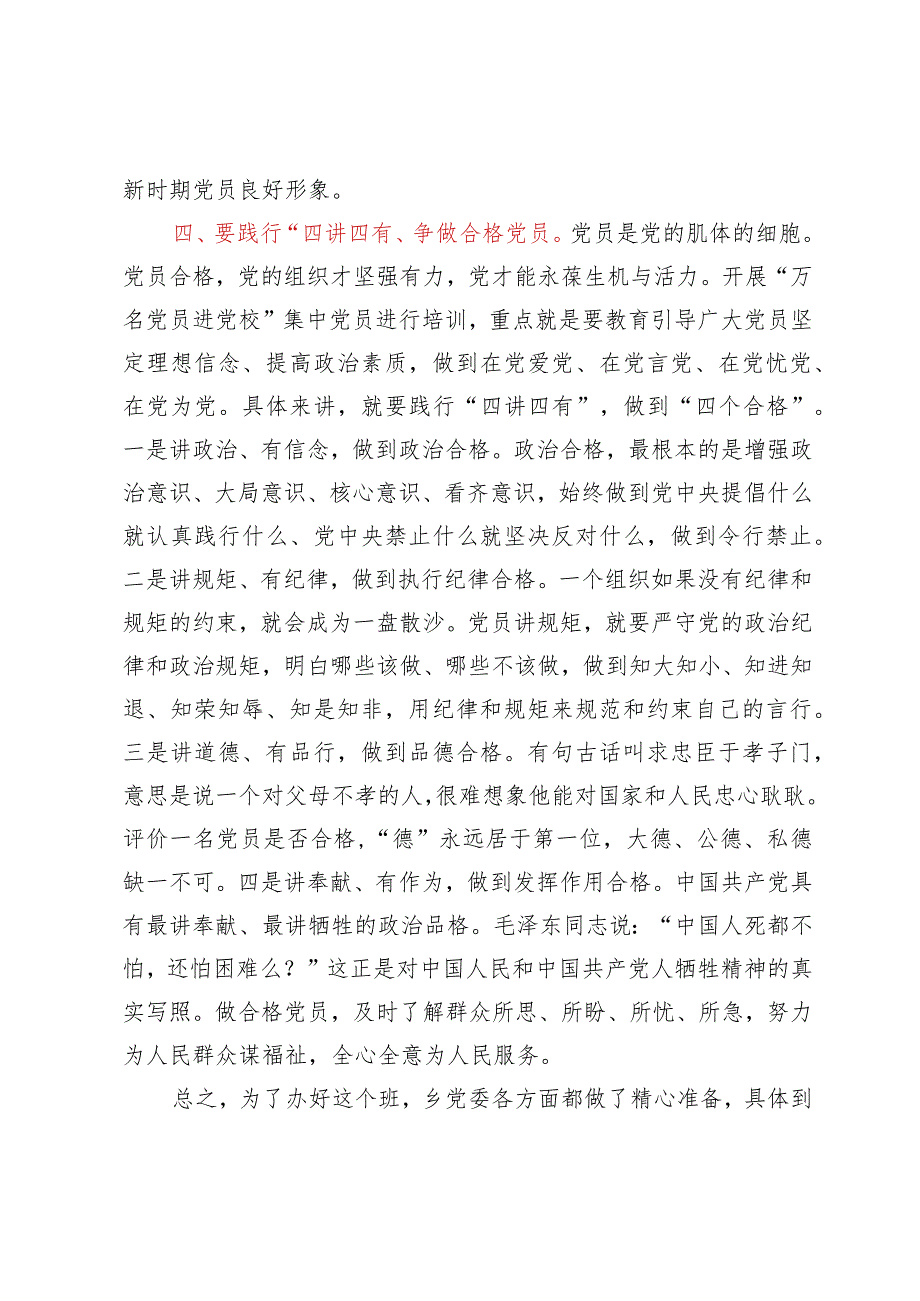 新时期党员良好形象。
四、要践行“四讲四有、争做合格党员。党员是党的肌体的细胞。
党员合格，党的组织才坚强有力，党才能永葆生机与活力。开展“万
名党员进党校”集中党员进行培训，重点就是要教育引导广大党员坚
定理想信念、提高政治素质，做到在党爱党、在党言党、在党忧党、
在党为党。具体来讲，就要践行“四讲四有”，做到“四个合格”。
一是讲政治、有信念，做到政治合格。政治合格，最根本的是增强政
治意识、大局意识、核心意识、看齐意识，始终做到党中央提倡什么
就认真践行什么、党中央禁止什么就坚决反对什么，做到令行禁止。
二是讲规矩、有纪律，做到执行纪律合格。一个组织如果没有纪律和
规矩的约束，就会成为一盘散沙。党员讲规矩，就要严守党的政治纪
律和政治规矩，明白哪些该做、哪些不该做，做到知大知小、知进知
退、知荣知辱、知是知非，用纪律和规矩来规范和约束自己的言行。
三是讲道德、有品行，做到品德合格。有句古话叫求忠臣于孝子门，
意思是说一个对父母不孝的人，很难想象他能对国家和人民忠心耿耿。
评价一名党员是否合格，“德”永远居于第一位，大德、公德、私德
缺一不可。四是讲奉献、有作为，做到发挥作用合格。中国共产党具
有最讲奉献、最讲牺牲的政治品格。毛泽东同志说：“中国人死都不
怕，还怕困难么？”这正是对中国人民和中国共产党人牺牲精神的真
实写照。做合格党员，及时了解群众所思、所盼、所忧、所急，努力
为人民群众谋福祉，全心全意为人民服务。
总之，为了办好这个班，乡党委各方面都做了精心准备，具体到